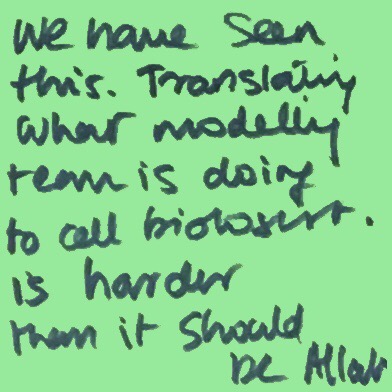 We have seen
this. Translating
what modelling
team is doing
to cell biologist.
is harder
than it should
be Allah